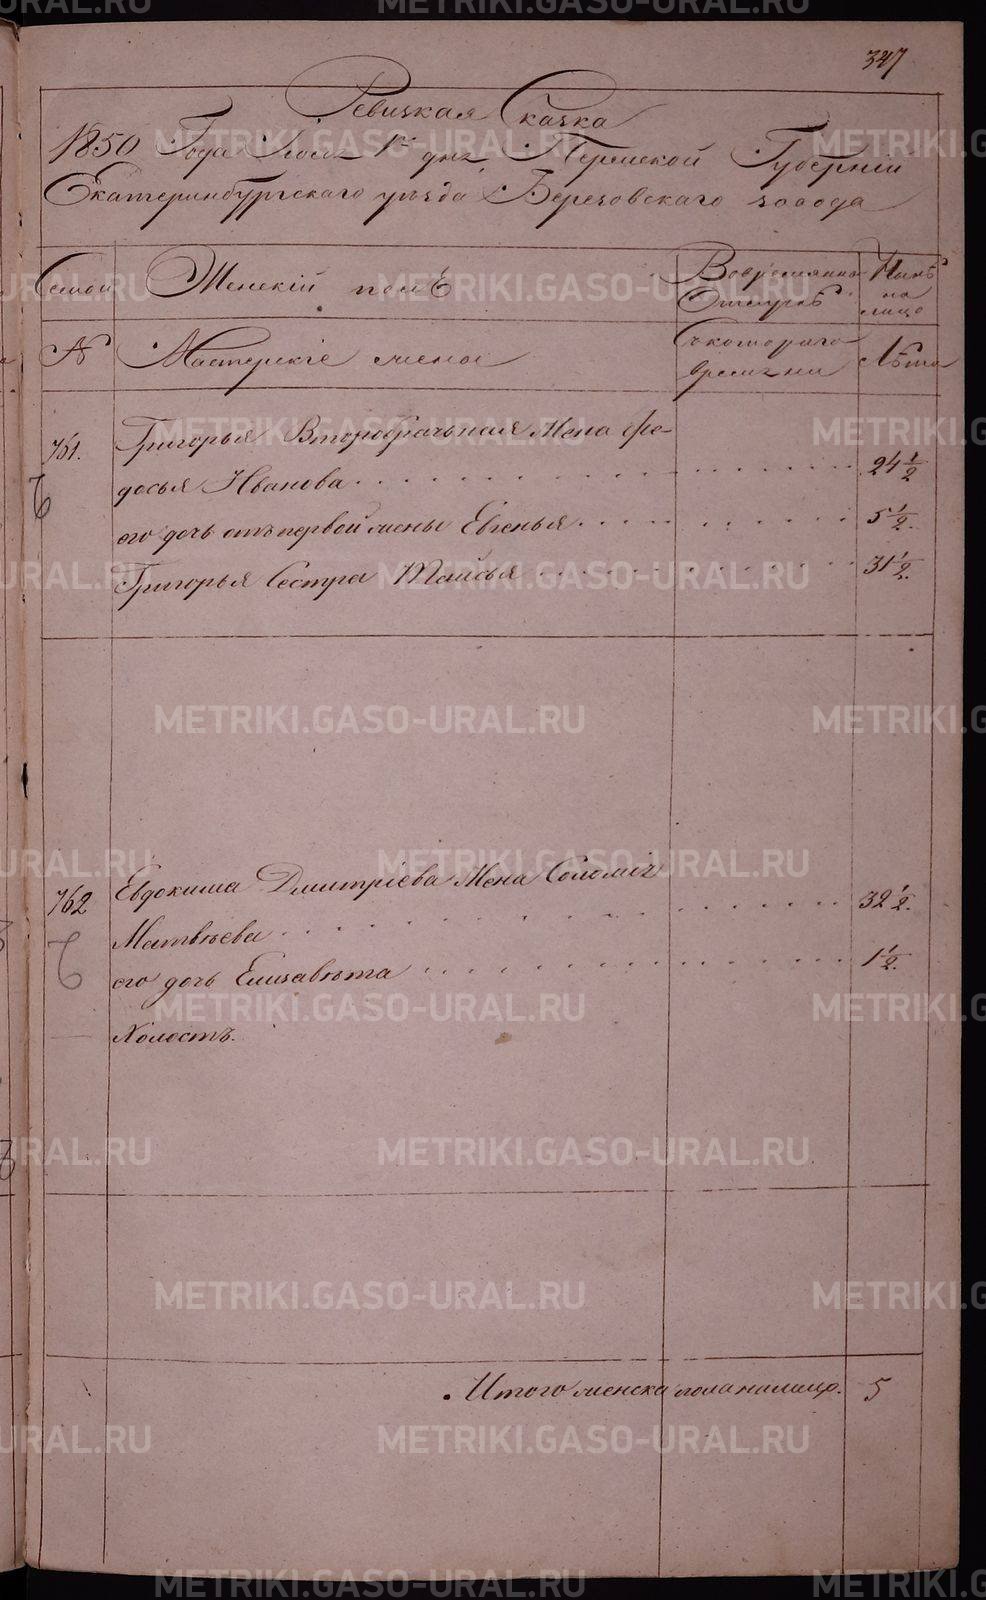 347
Ревизкая Сказка
1850 Года Июля 1го дня Пермской Губернiи
Екатеринбургскаго уѣзда Березовскаго завода
Семьи Женскiй полъ Вовременно Отлучкѣ Нынѣ на лицо
№ Мастерскiе жены Съкотораго времѣни Лѣта
761. Григорья Второбрачьная Жена Фе-
досья Иванова 24 1/2
его дочь отъ первой жены Евгенья 5 1/2.
Григорья Сестра Таисья 31 1/2.
762 Евдокима Дмитрiева Жена
Матвѣева 32 1/2.
его дочь Елизавѣта 1 1/2.
Холостъ.
Итого женска пола налицо. 5
METRIKI.GASO-URAL.RU